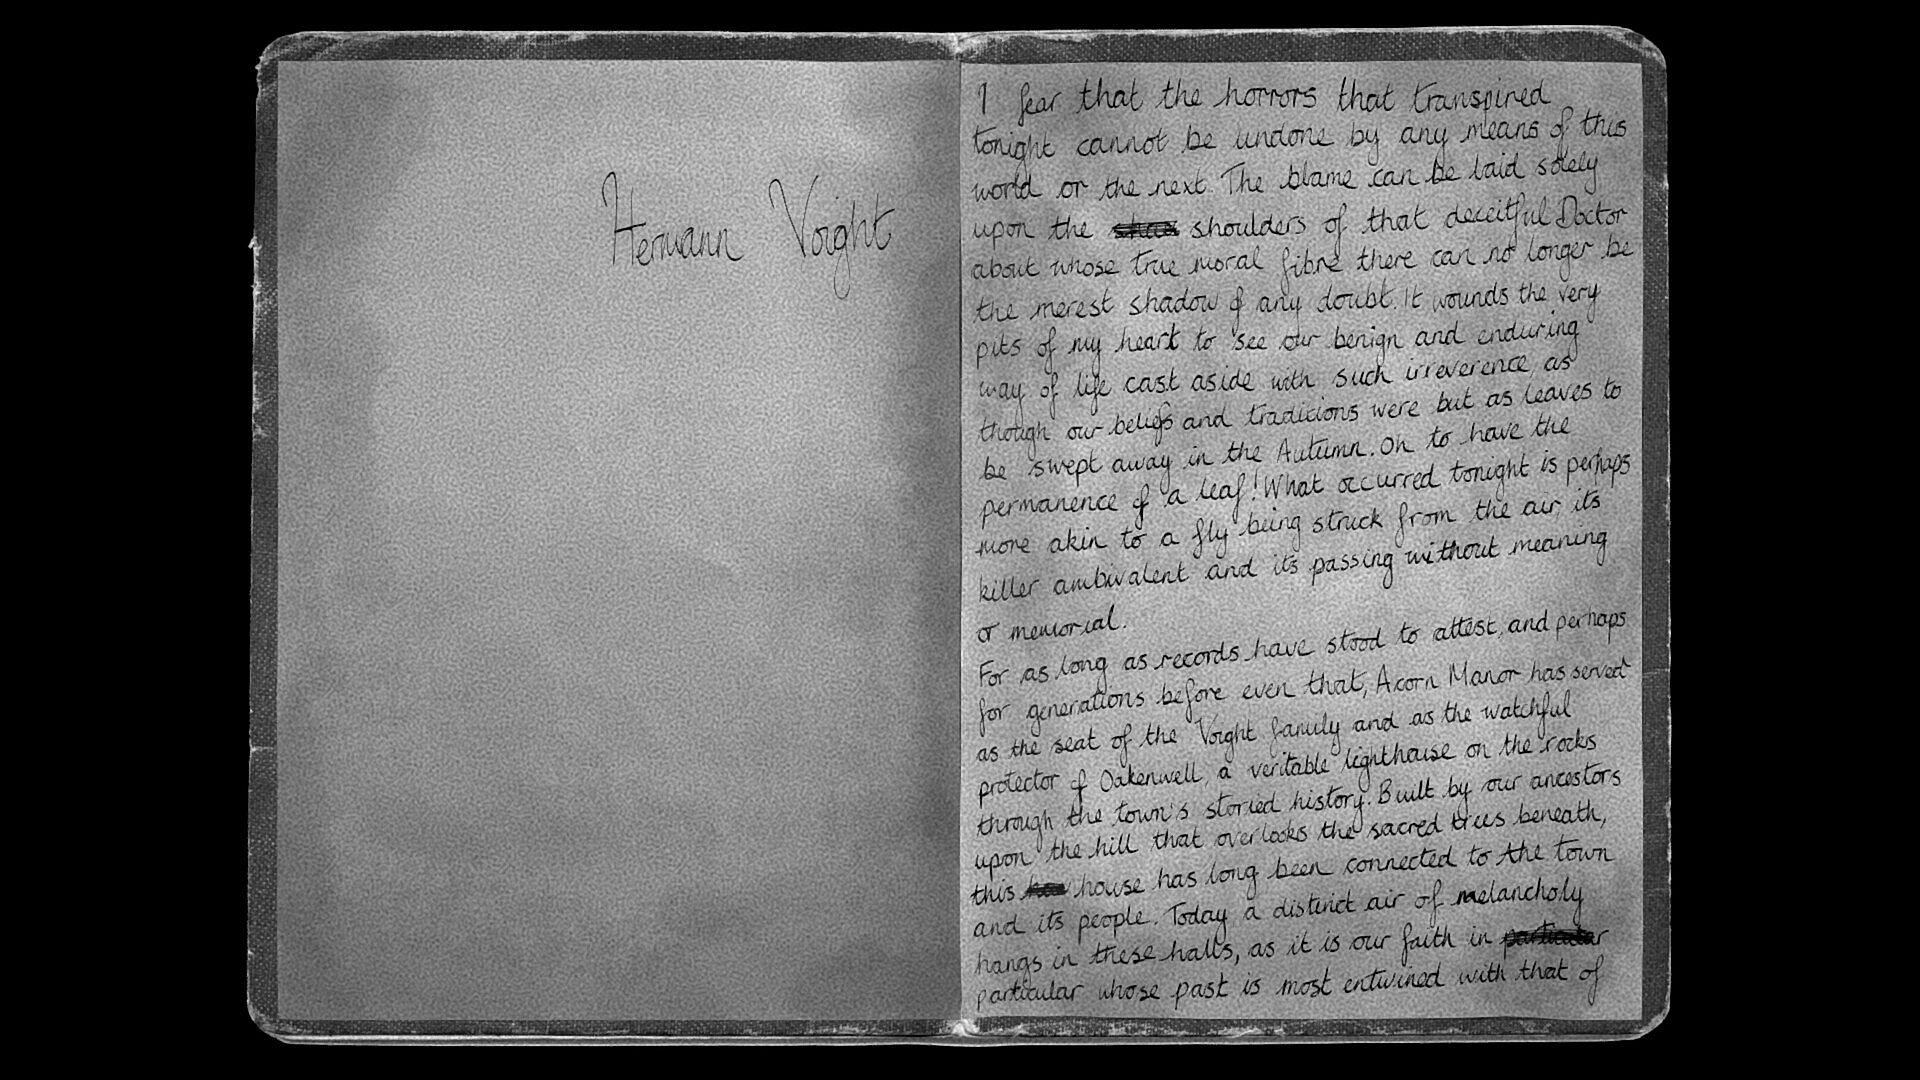 Hermann Voight
I fear that the horrors that transpired
tonight cannot be undone by any means of this
world or the next. The blame can be laid solely
upon the shoulders of that deceitful Doctor
about whose true moral fibre there can no longer be
the merest shadow of any doubt. It wounds the very
pits of my heart to see our benign and enduring
way of life cast aside with such irreverence, as
though our beliefs and traditions were but as leaves to
be swept away in the Autumn. Oh to have the
permanence of a leaf! What occurred tonight is perhaps
more akin to a fly being struck from the air, its
killer ambivalent and its passing without meaning
or memorial.
For as long as records have stood to attest, and perhaps
for generations before even that, Acorn Manor has served
as the seat of the Voight family and as the watchful
protector of Oakenwell, a veritable lighthouse on the rocks
through the town's storied history. Built by our ancestors
upon the hill that overlooks the sacred trees beneath,
this house has long been connected to the town
and its people. Today a distinct air of melancholy
hangs in these halls, as it is our faith in particular
particular whose past is most entwined with that of